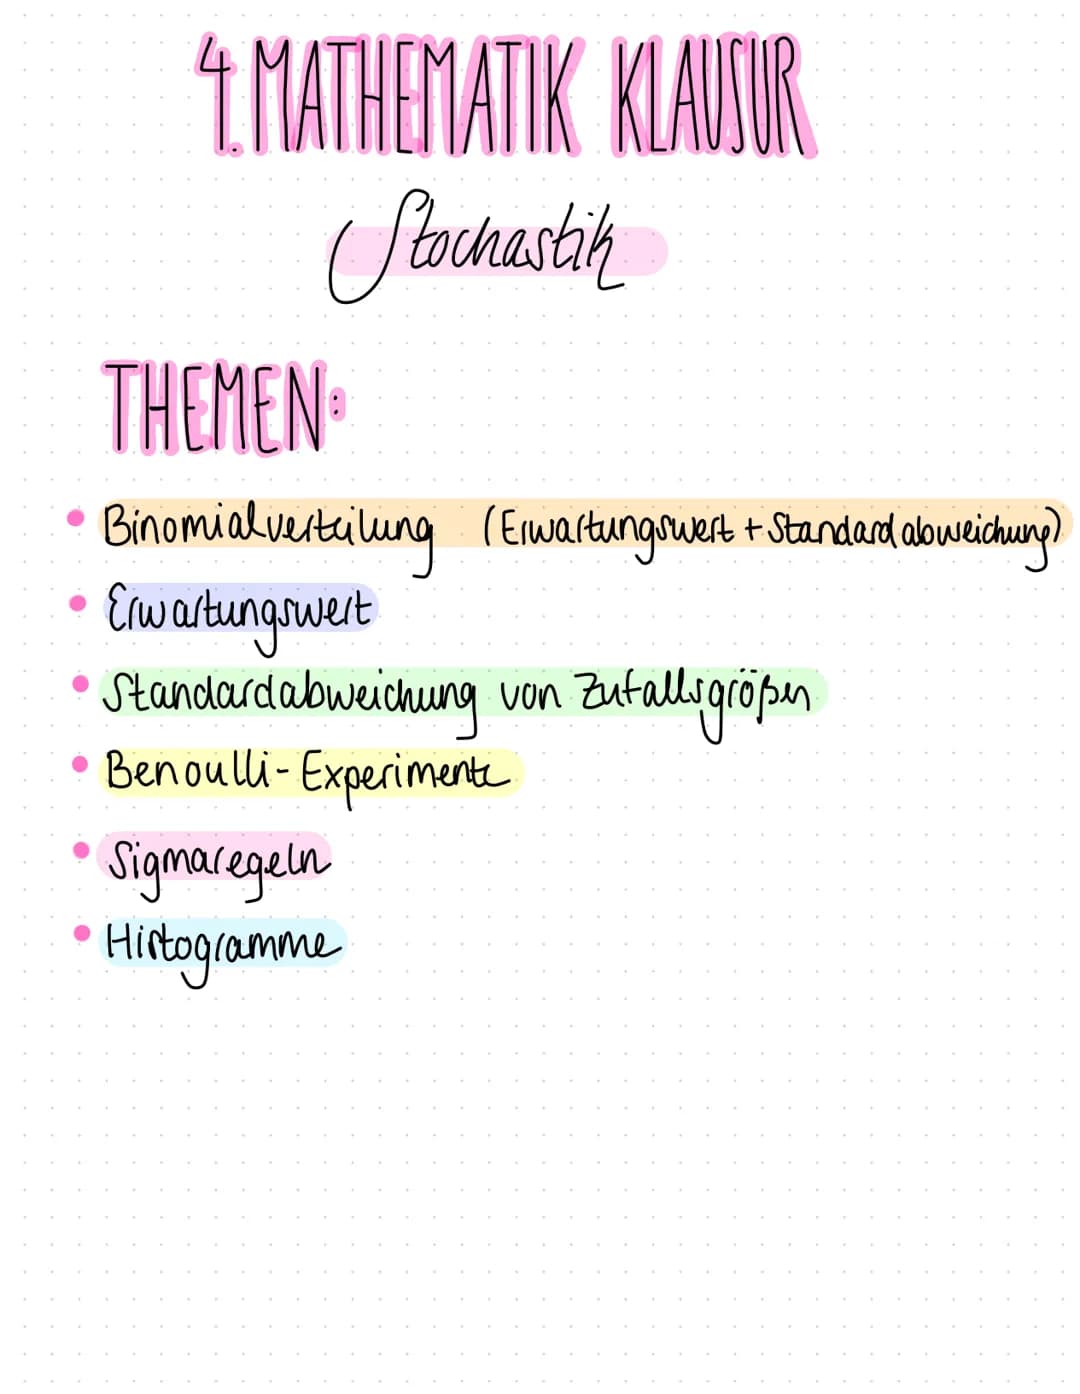 4. MATHEMATIK KLAUSUR
Stochastik
THEMEN:
• Binomialverteilung (Erwartungswert + Standardabweichung)
• Erwartungswert
• Standardabweichung von Zufallsgrößen
• Benoulli-Experimente
• Sigmaregeln
• Histogramme